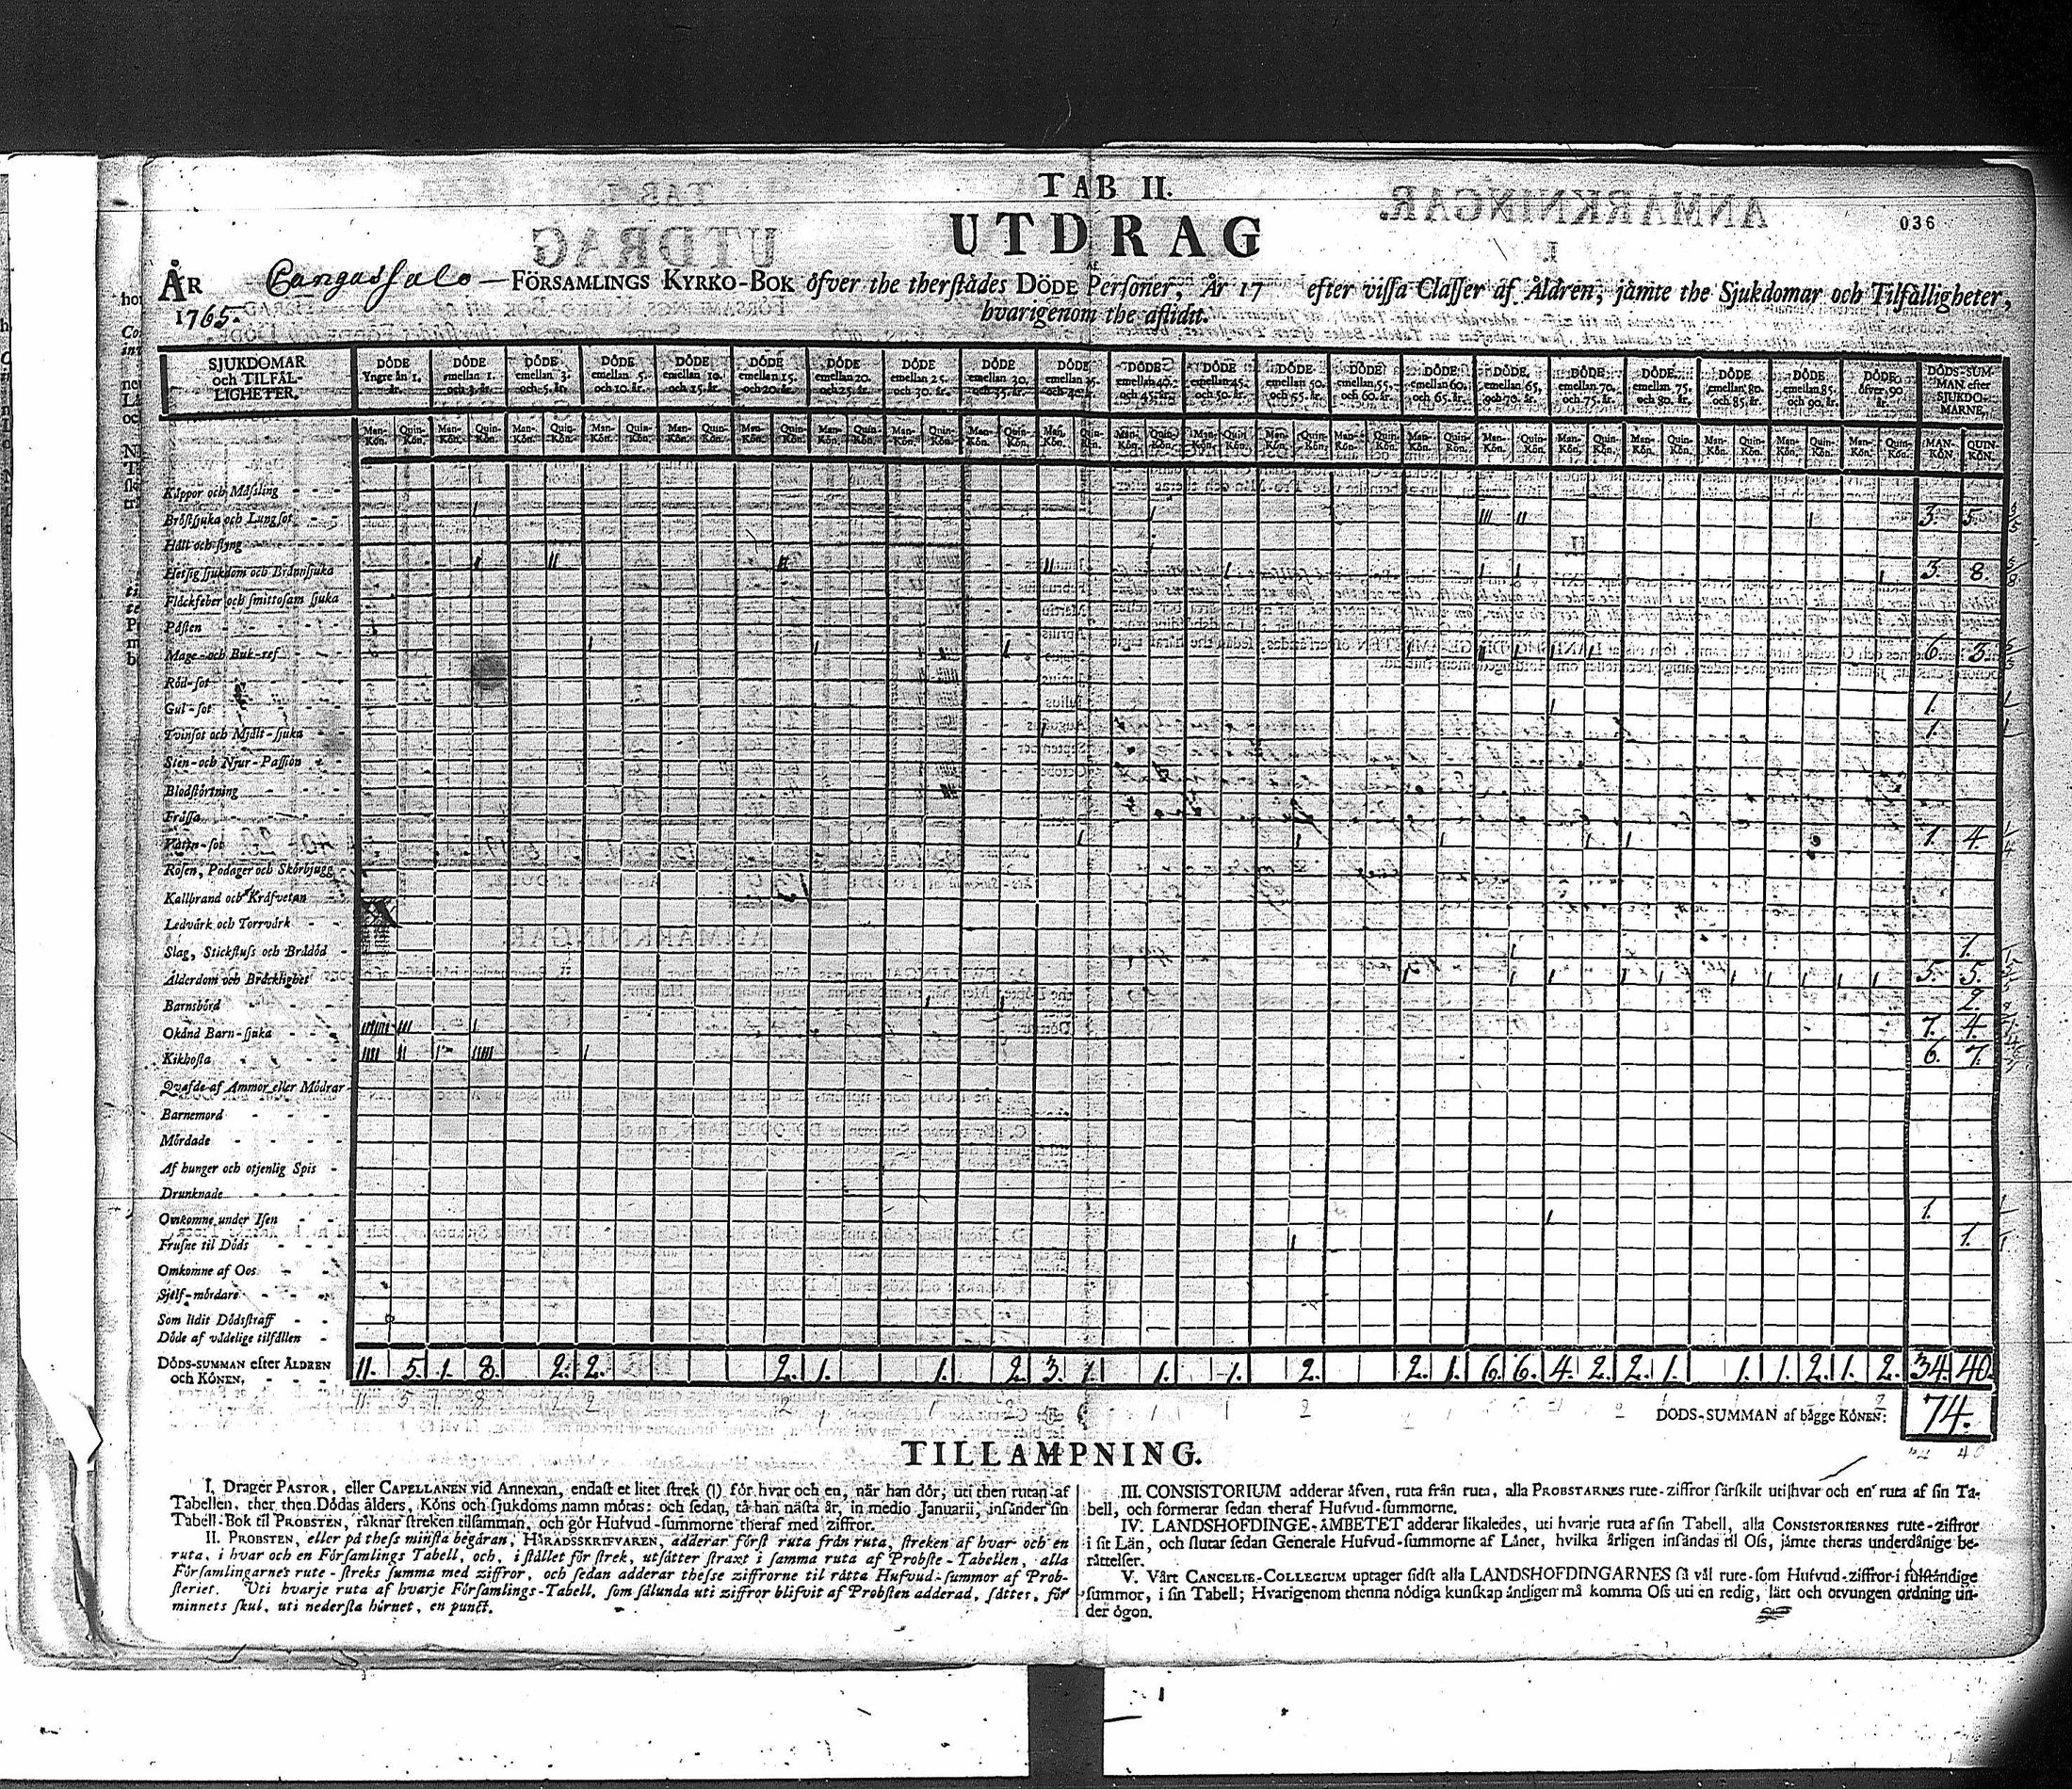 TAB II.
UTDRAG
036
ÅR 1765. Cangasſalo — FÖRSAMLINGS KYRKO-BOK öfver the therſtädes DÖDE Perſoner, År 17 efter viſſa Claſſer af Åldren, jämte the Sjukdomar och Tilfälligheter,
hvarigenom the aflidit.
SJUKDOMAR och TILFÄL-LIGHETER.
DÖDE Yngre än 1. år.
DÖDE emellan 1. och 3. år.
DÖDE emellan 3. och 5. år.
DÖDE emellan 5. och 10. år.
DÖDE emellan 10. och 15. år.
DÖDE emellan 15. och 20. år.
DÖDE emellan 20. och 25. år.
DÖDE emellan 25. och 30. år.
DÖDE emellan 30. och 35. år.
DÖDE emellan 35. och 40. år.
DÖDE emellan 40. och 45. år.
DÖDE emellan 45. och 50. år.
DÖDE emellan 50. och 55. år.
DÖDE emellan 55. och 60. år.
DÖDE emellan 60. och 65. år.
DÖDE emellan 65. och 70. år.
DÖDE emellan 70. och 75. år.
DÖDE emellan 75. och 80. år.
DÖDE emellan 80. och 85. år.
DÖDE emellan 85. och 90. år.
DÖDE öfver 90 år.
DÖDS-SUM-MAN efter SJUKDO-MARNE,
Man-Kön. Quin-Kön.
MAN-KÖN QUIN-KÖN.
Koppor och Mäßling
Bröſtſjuka och Lungſot 3. 5.
Håll och ſtyng
Hetſig ſjukdom och Brännſjuka 3. 8.
Fläckfeber och ſmittoſam ſjuka
Päſten
Mage- och Buk-ref 6. 3.
Röd-ſot
Gul-ſot 1.
Tvinſot och Mjält-ſjuka 1.
Sten- och Njur-Paſſion
Blodſtörtning
Fråſſa
Vatn-ſot 1. 4.
Roſen, Podager och Skörbjugg
Kallbrand och Kräfvetan
Ledvärk och Torrvärk
Slag, Stickfluſs och Brådöd 1.
Ålderdom och Bräcklighet 5. 5.
Barnsbörd 2.
Okänd Barn-ſjuka 7. 4.
Kikhoſta 6. 7.
Qvafde af Ammor eller Mödrar
Barnemord
Mördade
Af hunger och otjenlig Spis
Drunknade
Omkomne under Iſen 1.
Fruſne til Döds 1.
Omkomne af Oos
Sjelf-mördare
Som lidit Dödsſtraff
Döde af vådelige tilfällen
DÖDS-SUMMAN efter ÅLDREN och KÖNEN, 11. 5. 1. 8. 2. 2. 2. 1. 1. 2. 3. 1. 1. 1. 2. 2. 1. 6. 6. 4. 2. 2. 1. 1. 1. 2. 1. 2. 34. 40.
DÖDS-SUMMAN af bägge KÖNEN: 74.
TILLÄMPNING.
I. Drager PASTOR, eller CAPELLANEN vid Annexan, endaſt et litet ſtrek (|) för hvar och en, när han dör, uti then rutan af
Tabellen, ther then Dödas ålders, Köns och ſjukdoms namn mötas: och ſedan, tå han näſta år, in medio Januarii, inſänder ſin
Tabell-Bok til PROBSTEN, räknar ſtreken tilſamman, och gör Hufvud-ſummorne theraf med ziffror.
II. PROBSTEN, eller på theſs minſta begäran, HÄRADSSKRIFVAREN, adderar förſt ruta från ruta, ſtreken af hvar och en
ruta, i hvar och en Förſamlings Tabell, och, i ſtället för ſtrek, utſätter ſtraxt i ſamma ruta af Probſte-Tabellen, alla
Förſamlingarnes rute-ſtreks ſumma med ziffror, och ſedan adderar theſſe ziffrorne til rätta Hufvud-ſummor af Prob-
ſteriet. Uti hvarje ruta af hvarje Förſamlings-Tabell, ſom ſålunda uti ziffror blifvit af Probſten adderad, ſättes, för
minnets ſkul, uti nederſta hörnet, en punct.
III. CONSISTORIUM adderar äfven, ruta från ruta, alla PROBSTARNES rute-ziffror ſärſkilt uti hvar och en ruta af ſin Ta-
bell, och formerar ſedan theraf Hufvud-ſummorne.
IV. LANDSHÖFDINGE-ÄMBETET adderar likaledes, uti hvarje ruta af ſin Tabell, alla CONSISTORIERNES rute-ziffror
i ſit Län, och ſlutar ſedan Generale Hufvud-ſummorne af Länet, hvilka årligen inſändas til Oſs, jämte theras underdånige be-
rättelſer.
V. Vårt CANCELIE-COLLEGIUM uptager ſidſt alla LANDSHÖFDINGARNES ſå väl rute-ſom Hufvud-ziffror i fulſtändige
ſummor, i ſin Tabell; Hvarigenom thenna nödiga kunſkap ändligen må komma Oſs uti en redig, lätt och otvungen ordning un-
der ögon.